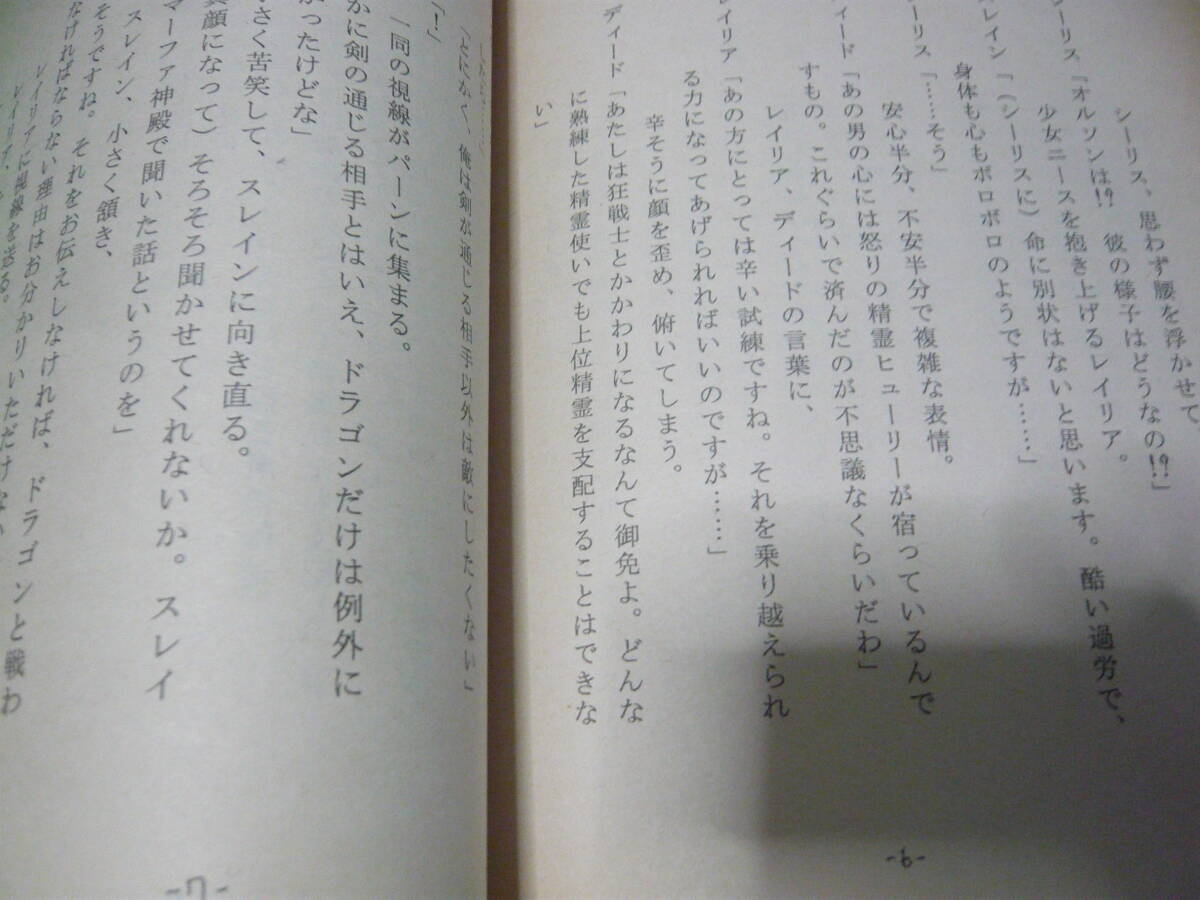 シーリス、思わず腰を浮かせて、
シーリス「オルソンは!? 彼の様子はどうなの!?」
少女ニースを抱き上げるレイリア。
スレイン「(シーリスに)命に別状はないと思います。酷い過労で、
身体も心もボロボロのようですが……」
シーリス「……そう」
安心半分、不安半分で複雑な表情。
ディード「あの男の心には怒りの精霊ヒューリーが宿っているんで
すもの。これぐらいで済んだのが不思議なくらいだわ」
レイリア、ディードの言葉に、
レイリア「あの方にとっては辛い試練ですね。それを乗り越えられ
る力になってあげられればいいのですが……」
辛そうに顔を歪め、俯いてしまう。
ディード「あたしは狂戦士とかかわりになるなんて御免よ。どんな
に熟練した精霊使いでも上位精霊を支配することはできな
い」
-6-
「とにかく、俺は剣が通じる相手以外は敵にしたくない」
「!」
一同の視線がパーンに集まる。
かに剣の通じる相手とはいえ、ドラゴンだけは例外に
かったけどな」
さく苦笑して、スレインに向き直る。
顔になって)そろそろ聞かせてくれないか。スレイ
マーファ神殿で聞いた話というのを」
スレイン、小さく頷き、
そうですね。それをお伝えしなければ、ドラゴンと戦わ
なければならない理由はお分かりいただけない
レイリアに視線を送る。
レイリア、
-7-